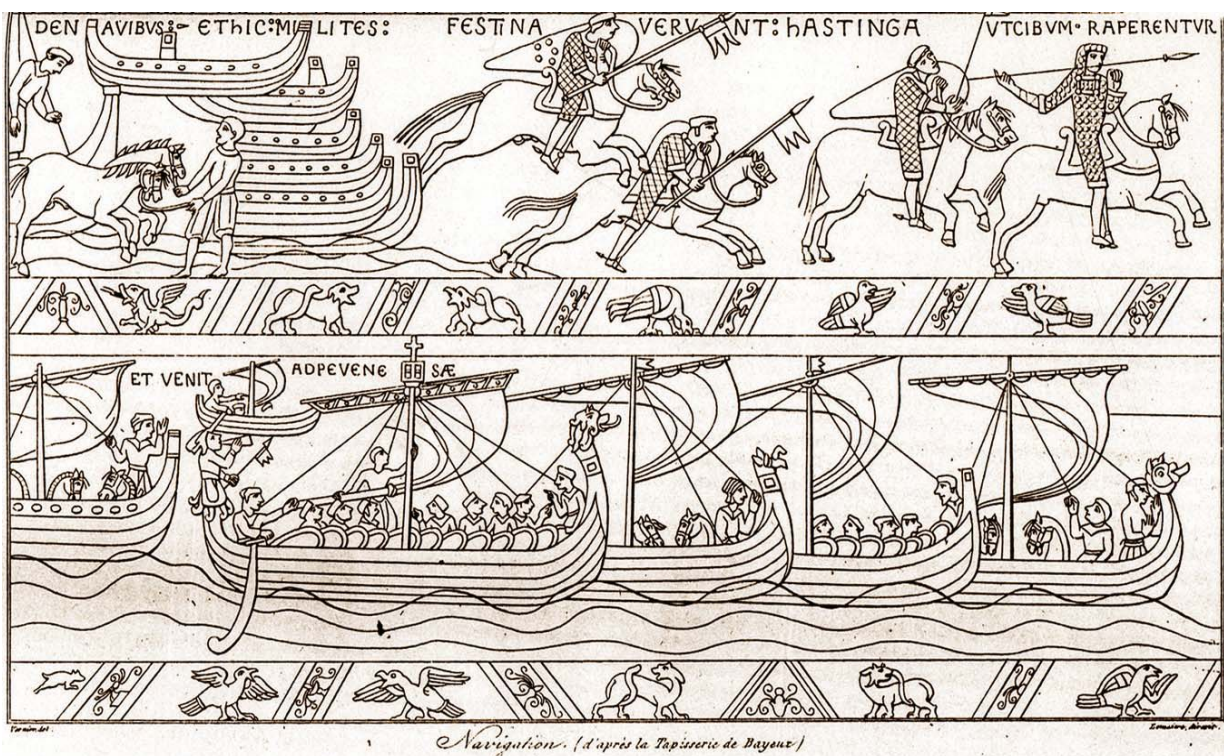 DE NAVIBUS:- ET hIC: MILITES: FESTINAVERUNT: hASTINGA UTCIBUM· RAPERENTUR
ET VENIT ADPEVENESÆ
Navigation. (d'après la Tapisserie de Bayeux)